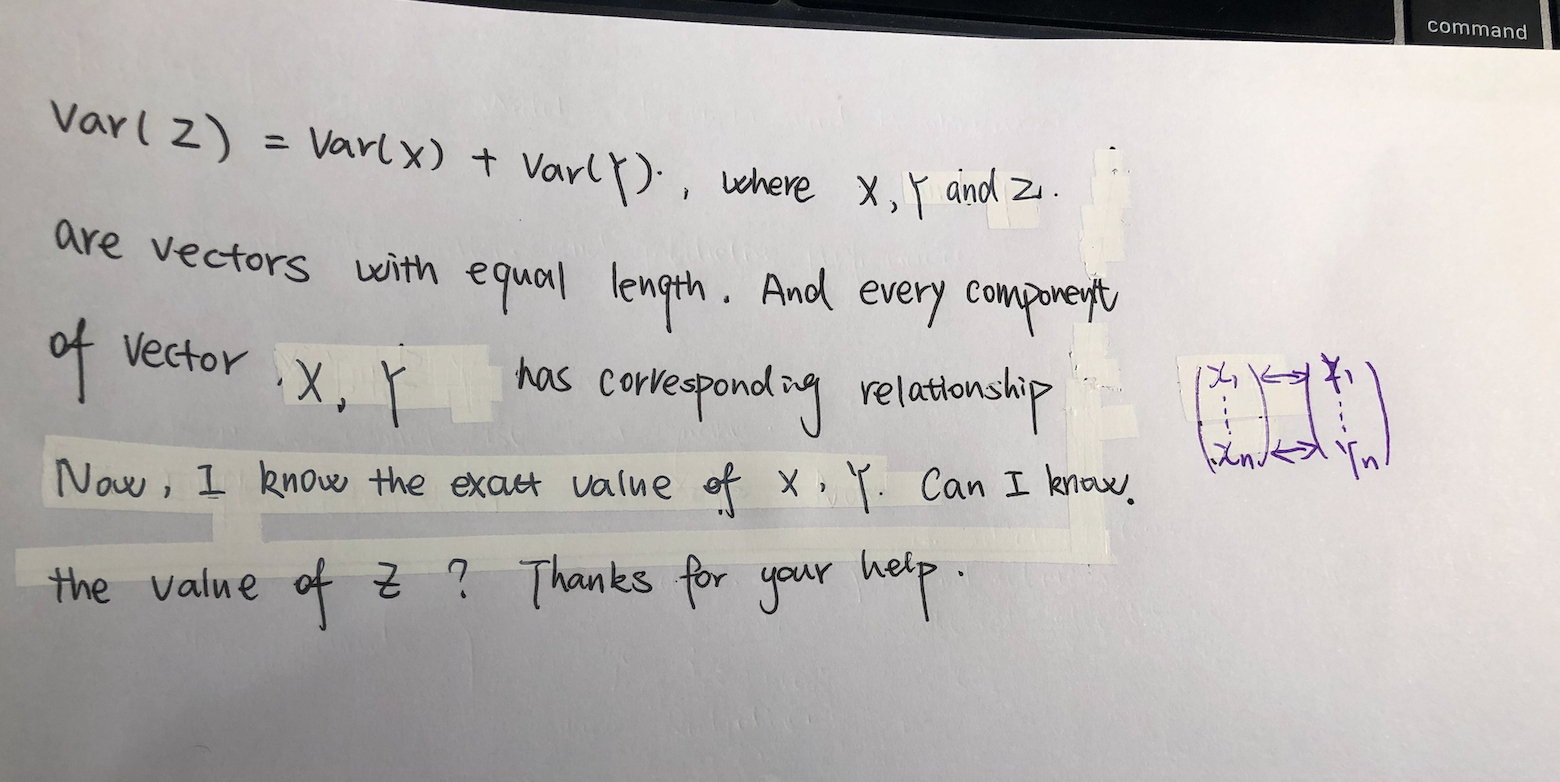 command
Var(Z) = Var(X) + Var(Y)., where X, Y and Z.
are vectors with equal length. And every component
of vector X, Y has corresponding relationship
(x1 ⋮ xn) ↔ (Y1 ⋮ Yn)
Now, I know the exact value of X, Y. Can I know.
the value of Z ? Thanks for your help.